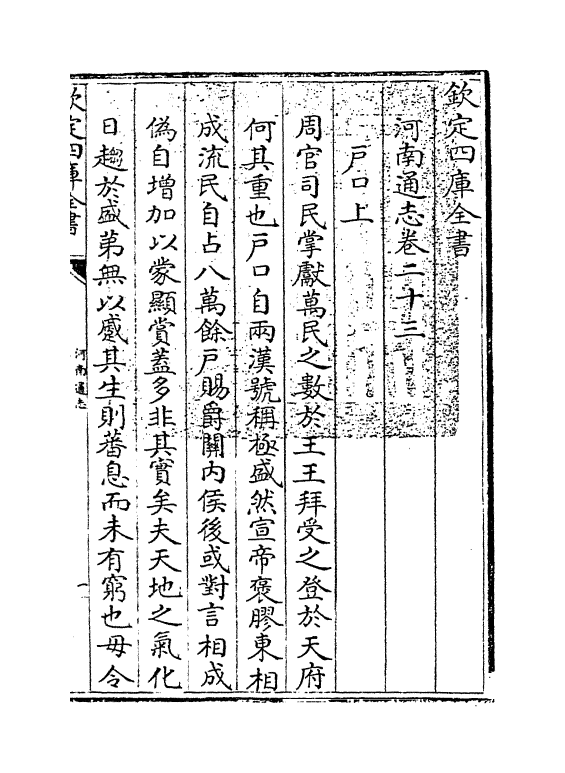 欽定四庫全書
河南通志卷二十三
戸口上
周官司民掌獻萬民之數於王王拜受之登於天府
何其重也戸口自兩漢號稱極盛然宣帝褒膠東相
成流民自占八萬餘戸賜爵關内侯後或對言相成
偽自增加以蒙顯賞蓋多非其實矣夫天地之氣化
日趨於盛苐無以蹙其生則蕃息而未有窮也毋令
欽定四庫全書
河南通志
一